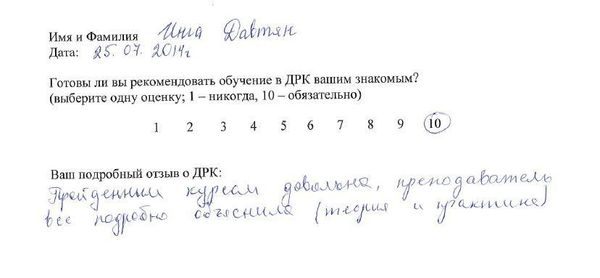 Имя и Фамилия Инга Давтян
Дата: 25.07.2014г
Готовы ли вы рекомендовать обучение в ДРК вашим знакомым?
(выберите одну оценку; 1 – никогда, 10 – обязательно)
1 2 3 4 5 6 7 8 9 10
Ваш подробный отзыв о ДРК:
Пройденным курсом довольна, преподаватель
все подробно объяснила (теория и практике)